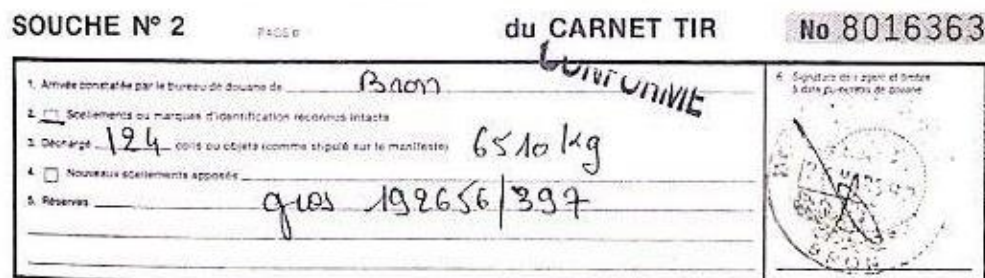 SOUCHE Nº 2 PAGE du CARNET TIR No 8016363
CONFORME
1. Arrivée constatée par le bureau de douane de Bron
2. Scellements ou marques d'identification reconnus intacts
3. Déchargé 124 colis ou objets (comme stipulé sur le manifeste) 6510 kg
4. Nouveaux scellements apposés
5. Réserves gros 192656/397
6. Signature de l'agent et timbre
à date du bureau de douane
BRON